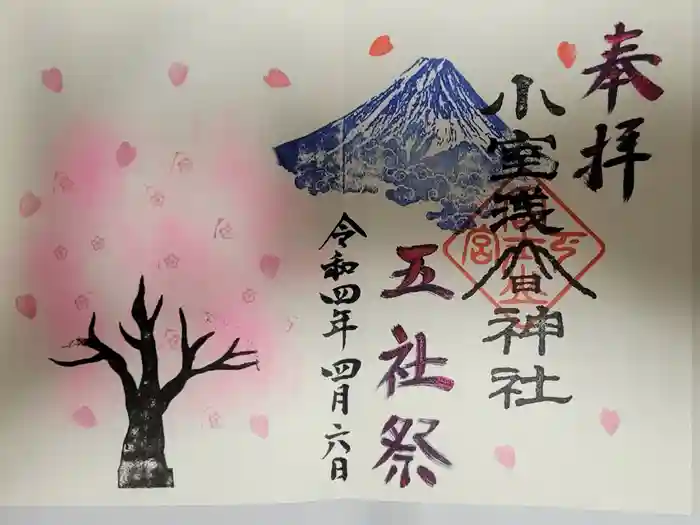 奉拝
小室浅間神社
五社祭
令和四年四月六日